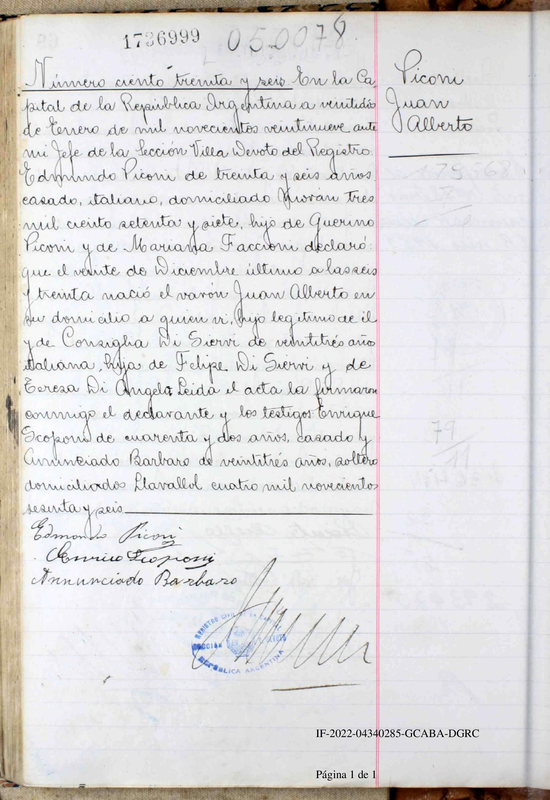 1736999 050078
Número ciento treinta y seis En la Ca
pital de la República Argentina a veintidós
de Enero de mil novecientos veintinueve, ante
mi Jefe de la Sección Villa Devoto del Registro.
Edmundo Piconi de treinta y seis años
casado, italiano, domiciliado Morán tres
mil ciento setenta y siete, hijo de Guerino
Piconi y de Mariana Faccioni declaró:
que el veinte de Diciembre último a las seis
y treinta nació el varón Juan Alberto en
su domicilio a quien vi, hijo legítimo de él
y de Consiglia Di Siervi de veintitrés años
italiana, hija de Felipe Di Siervi y de
Teresa Di Angelo. Leida el acta la firmaron
conmigo el declarante y los testigos Enrique
Scoponi de cuarenta y dos años, casado y
Annunciado Barbaro de veintitrés años, soltero
domiciliados Llavallol cuatro mil novecientos
sesenta y seis
Edmondo Piconi
Enrico Scoponi
Annunciado Barbaro
Piconi
Juan
Alberto
REGISTRO CIVIL DE LA CAPITAL
REPÚBLICA ARGENTINA
IF-2022-04340285-GCABA-DGRC
Página 1 de 1